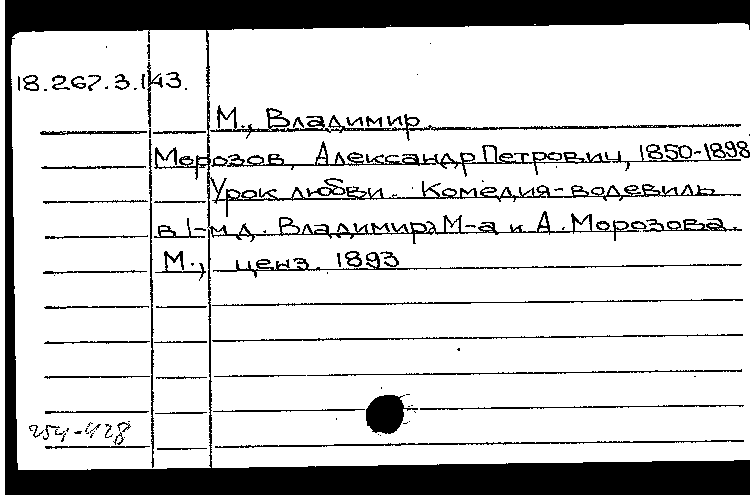 18.267.3.143.
М., Владимир.
Морозов, Александр Петрович, 1850-1898
Урок любви. Комедия-водевиль
в 1-м д. Владимира М-а и А. Морозова.
М., ценз. 1893
254-428